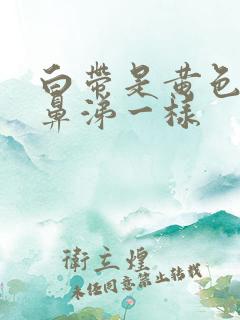 白带是黄色
鼻涕一样
衛立煌
未任同意禁止转载